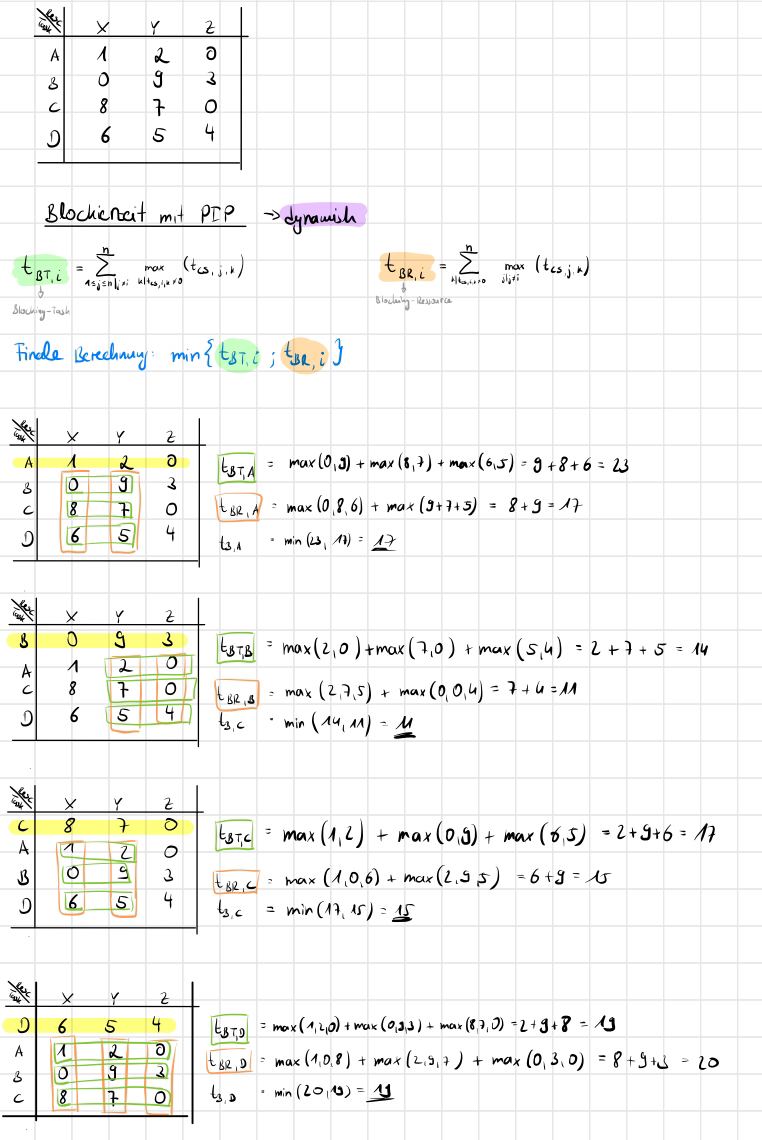 Resc Task X Y Z
A 1 2 0
B 0 9 3
C 8 7 0
D 6 5 4
Blockierzeit mit PIP → dynamish
t_BT,i = Σ^n_1≤j≤n|j≠i max_k|t_CS,i,k≠0 (t_CS,j,k)
Blocking-Task
t_BR,i = Σ^n_k|t_CS,i,k>0 max_j|j≠i (t_CS,j,k)
Blocking-Ressource
Finale Berechnung: min{t_BT,i ; t_BR,i}
Resc Task X Y Z
A 1 2 0
B 0 9 3
C 8 7 0
D 6 5 4
t_BT,A = max(0,9) + max(8,7) + max(6,5) = 9+8+6 = 23
t_BR,A = max(0,8,6) + max(9+7+5) = 8+9 = 17
t_B,A = min(23, 17) = 17
Resc Task X Y Z
B 0 9 3
A 1 2 0
C 8 7 0
D 6 5 4
t_BT,B = max(2,0) + max(7,0) + max(5,4) = 2+7+5 = 14
t_BR,B = max(2,7,5) + max(0,0,4) = 7+4 = 11
t_B,C = min(14,11) = 11
Resc Task X Y Z
C 8 7 0
A 1 2 0
B 0 9 3
D 6 5 4
t_BT,C = max(1,2) + max(0,9) + max(6,5) = 2+9+6 = 17
t_BR,C = max(1,0,6) + max(2,9,5) = 6+9 = 15
t_B,C = min(17,15) = 15
Resc Task X Y Z
D 6 5 4
A 1 2 0
B 0 9 3
C 8 7 0
t_BT,D = max(1,2,0) + max(0,9,3) + max(8,7,0) = 2+9+8 = 19
t_BR,D = max(1,0,8) + max(2,9,7) + max(0,3,0) = 8+9+3 = 20
t_B,D = min(20,19) = 19